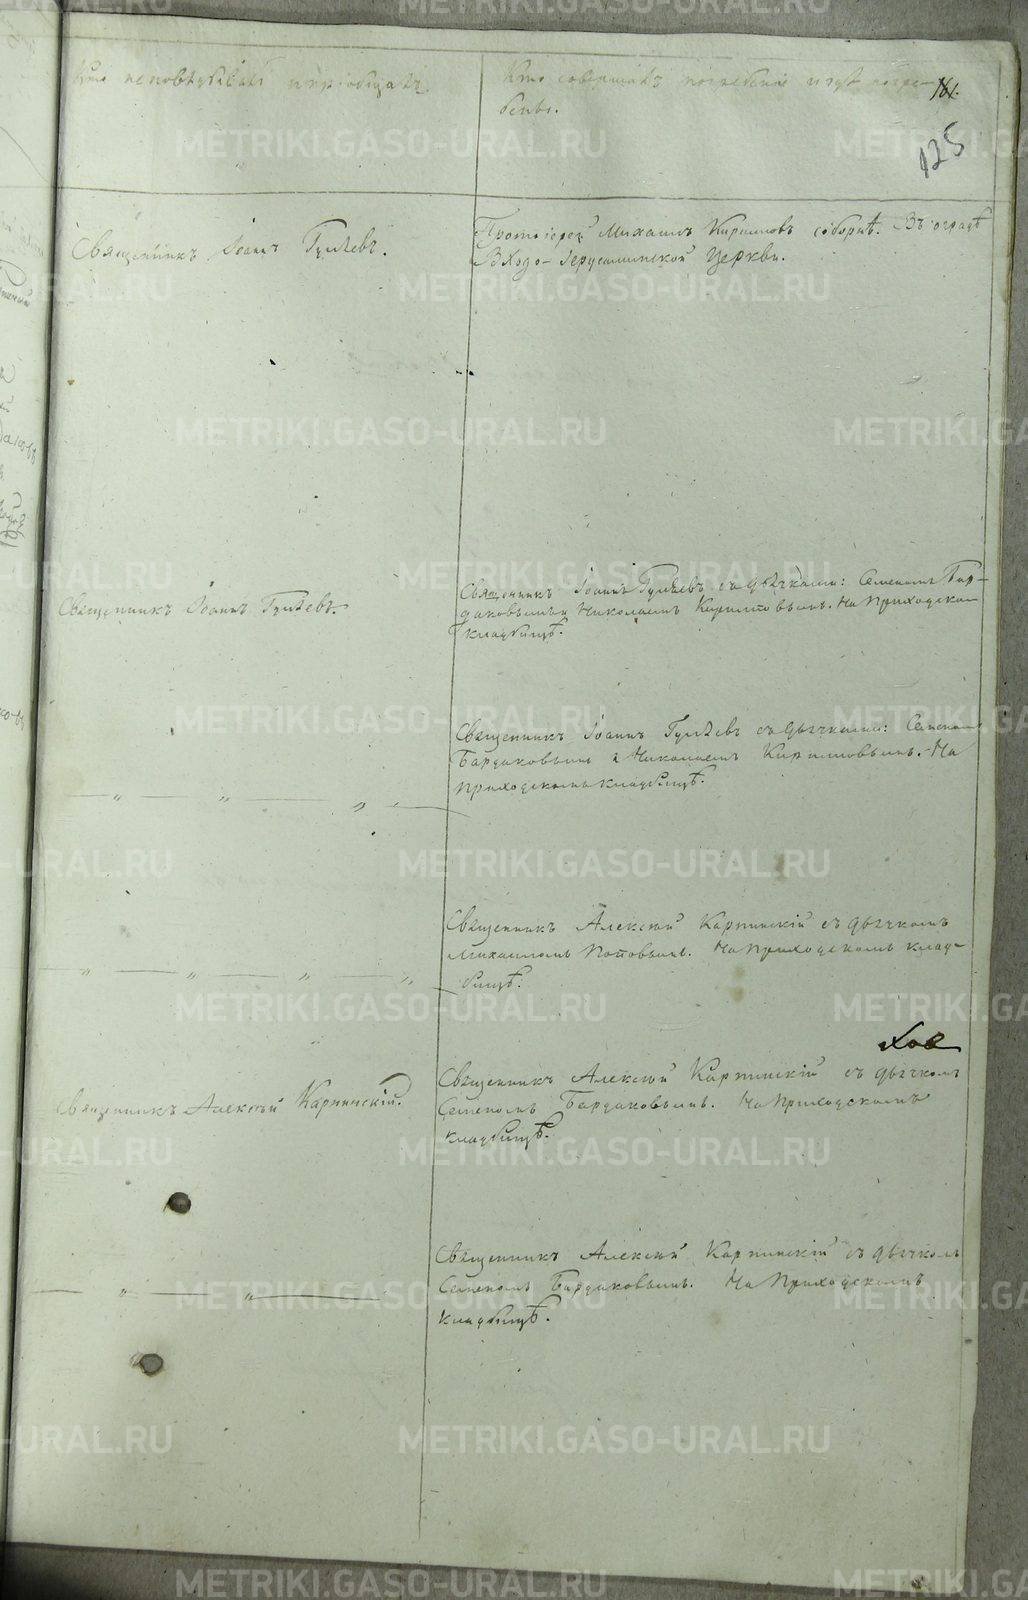 Кто исповѣдывалъ и пріобщалъ
Кто совершалъ погребеніе и гдѣ погре-
бены.
161.
125
Священникъ Іоаннъ Гуляевъ.
Протоіерей Михаилъ Кириловъ соборнѣ. Въ оградѣ
Входо-Іерусалимской Церкви.
Священникъ Іоаннъ Гуляевъ
Священникъ Іоаннъ Гуляевъ съ дьячками: Семеномъ Бар-
даковымъ и Николаемъ Кириловымъ. На Приходском
кладбищѣ.
Священникъ Іоаннъ Гуляевъ съ дьячками: Семеномъ
Бардаковымъ и Николаемъ Кириловымъ. На
Приходскомъ кладбищѣ.
Священникъ Алексѣй Карпинскій съ дьячкомъ
Михаиломъ Поповымъ. На Приходскомъ клад-
бищѣ.
Священникъ Алексѣй Карпинскій.
Священникъ Алексѣй Карпинскій съ дьячком
Семеномъ Бардаковымъ. На Приходскомъ
кладбищѣ.
Священникъ Алексѣй Карпинскій съ дьячком
Семеномъ Бардаковымъ. На Приходскомъ
кладбищѣ.
METRIKI.GASO-URAL.RU